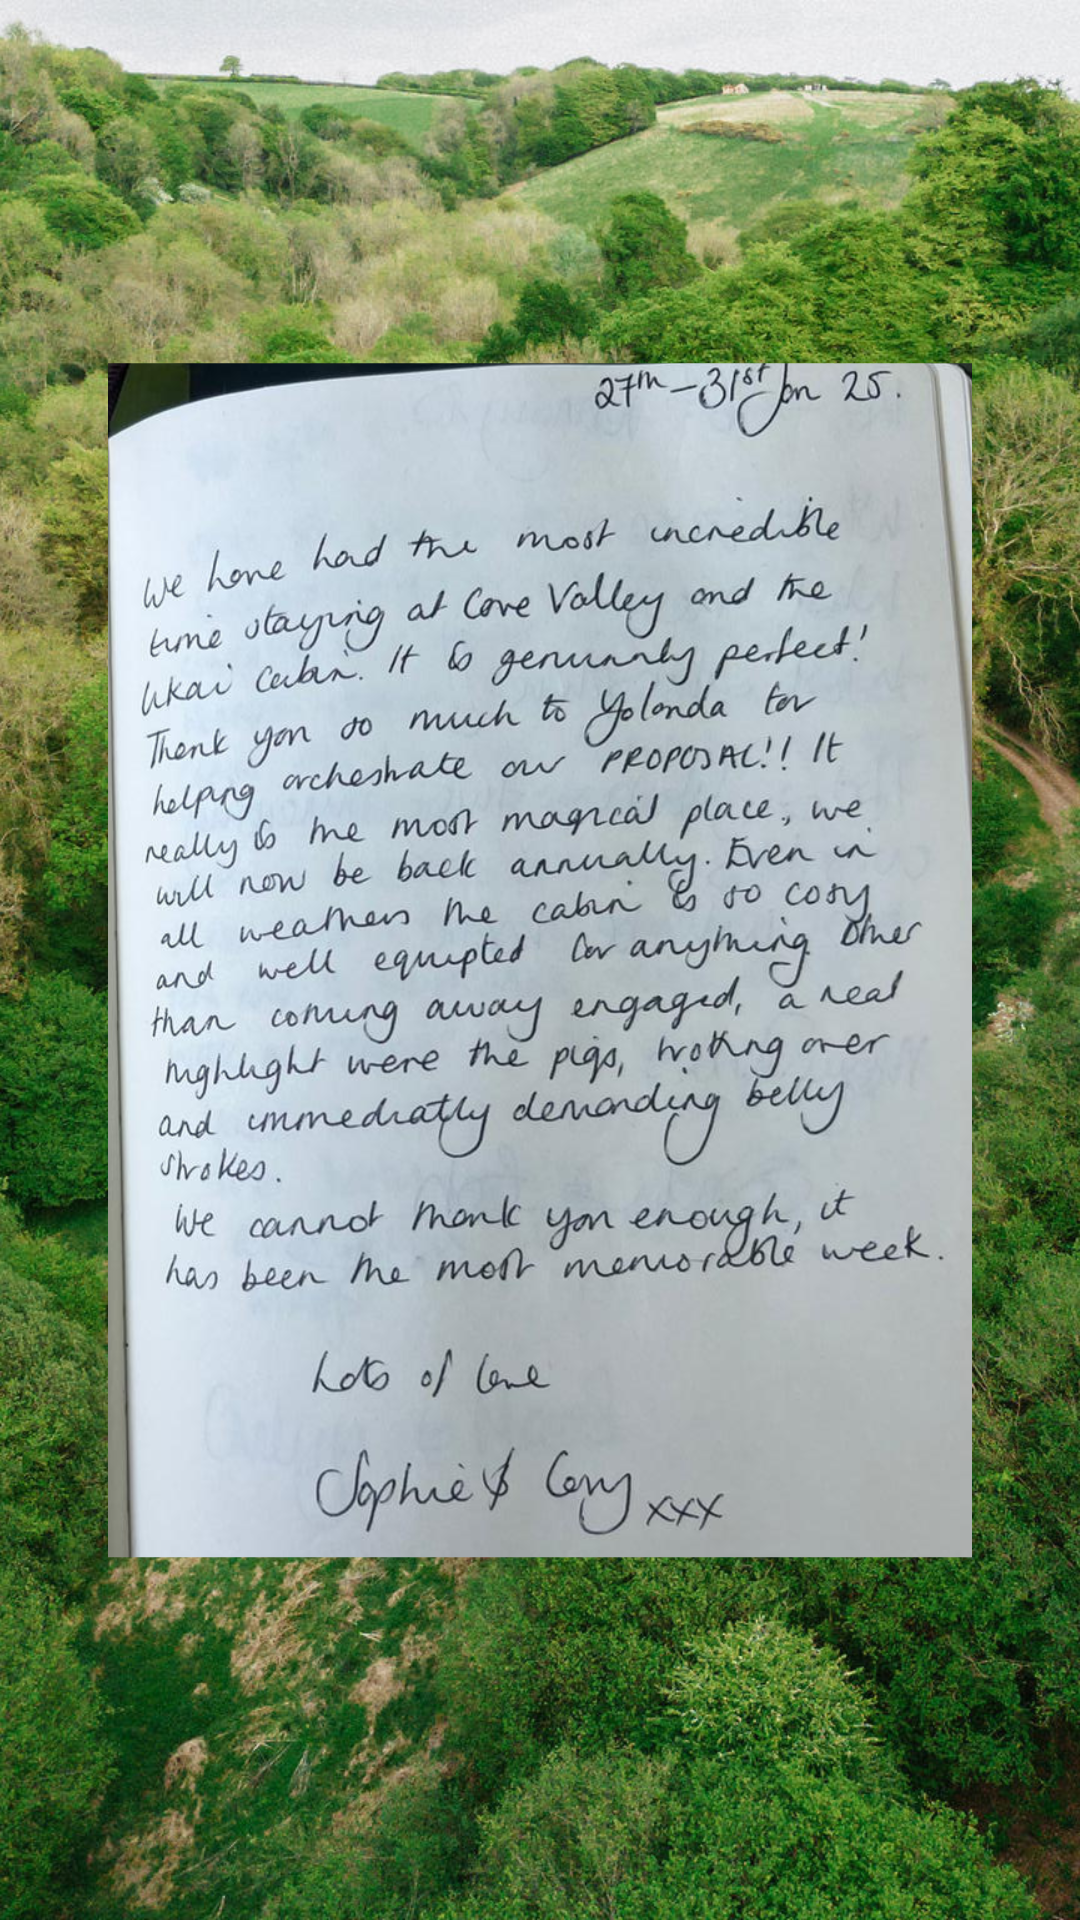 27th - 31st Jan 25.
We have had the most incredible
time staying at Cove Valley and the
Ukai Cabin. It is genuinely perfect!
Thank you so much to Yolanda for
helping orchestrate our PROPOSAL!! It
really is the most magical place, we
will now be back annually. Even in
all weathers the cabin is so cosy
and well equipted for anything. Other
than coming away engaged, a real
highlight were the pigs, trotting over
and immediatly demanding belly
strokes.
We cannot thank you enough, it
has been the most memorable week.
Lots of love
Sophie & xxx